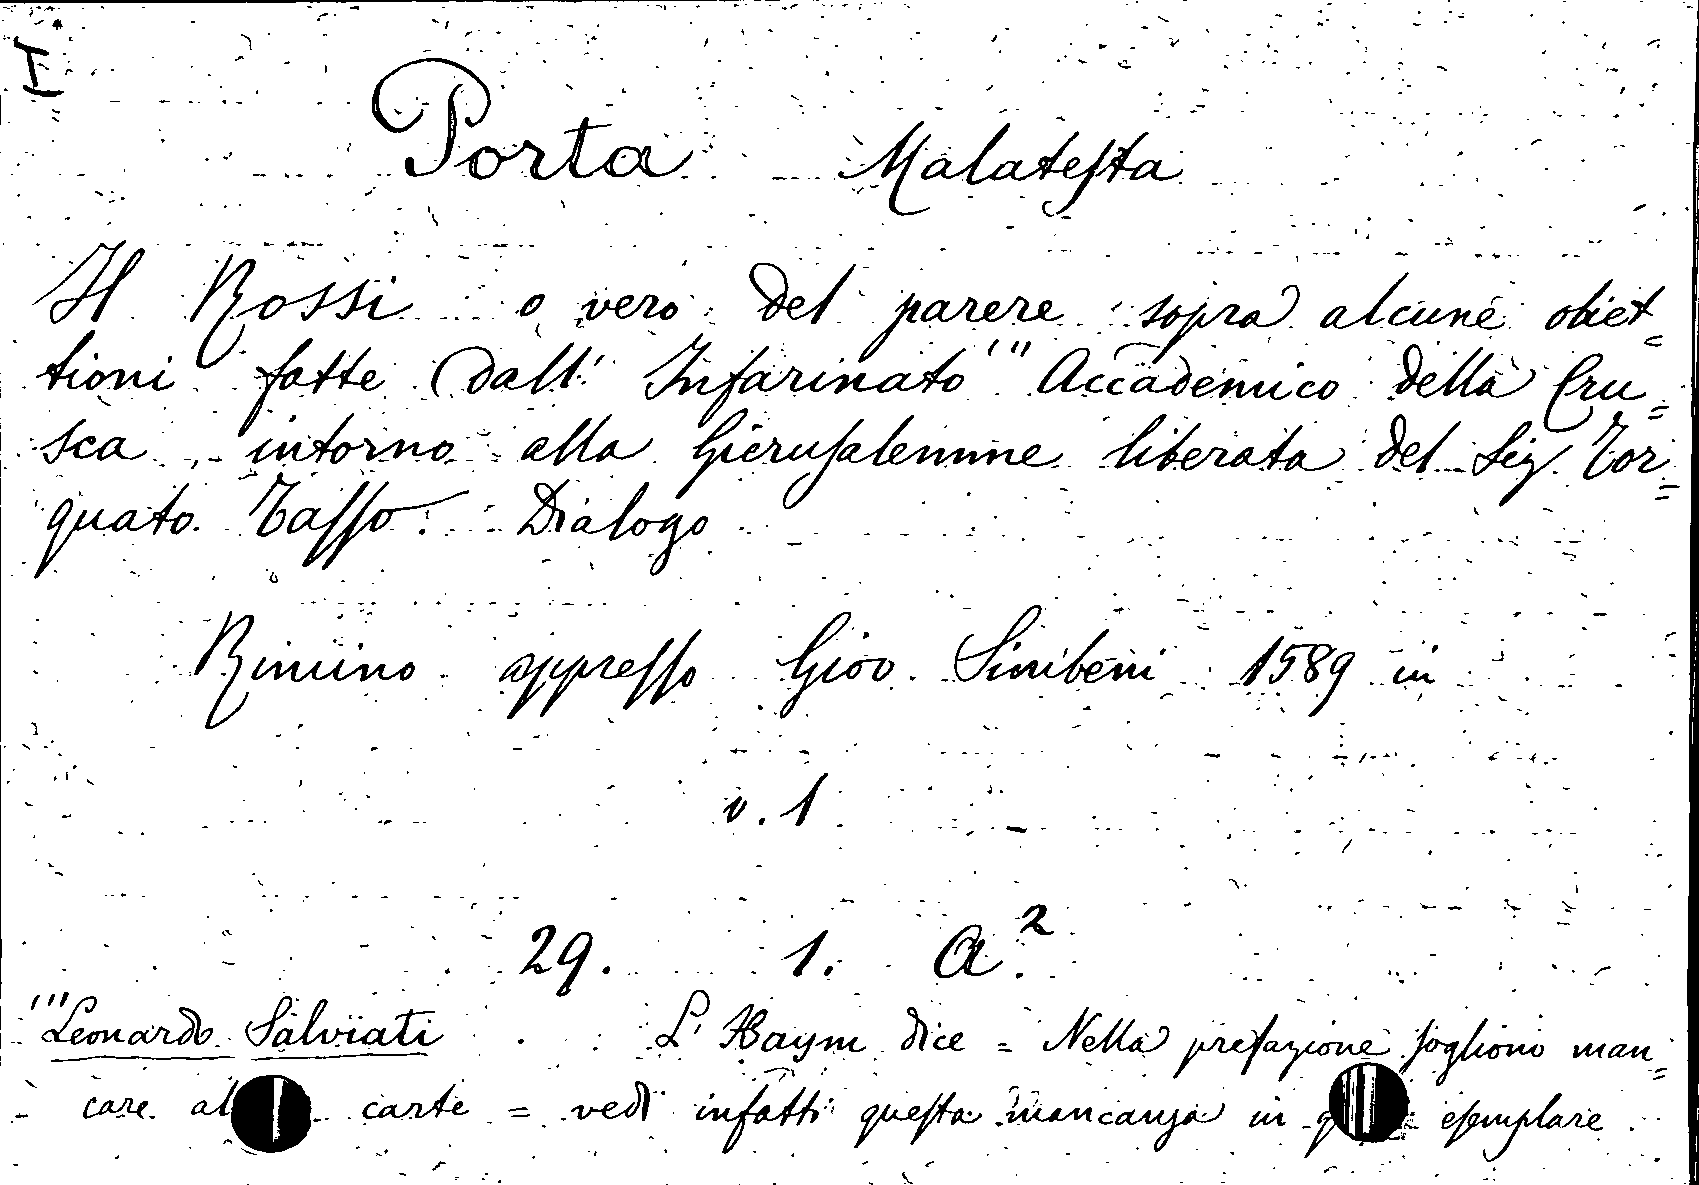 I
Porta Malatesta
Il Rossi o vero del parere sopra alcune obiet=
tioni fatte dall' Infarinato (1) Accademico della Cru=
sca intorno alla Gierusalemme liberata del Sig. Tor=
quato Tasso. Dialogo
Rimino appresso Giov. Simbeni 1589 in
v. 1
29. 1. A.²
(1) Leonardo Salviati L' Haym dice = Nella prefazione sogliono man=
care carte = vedi infatti questa mancanza in esemplare